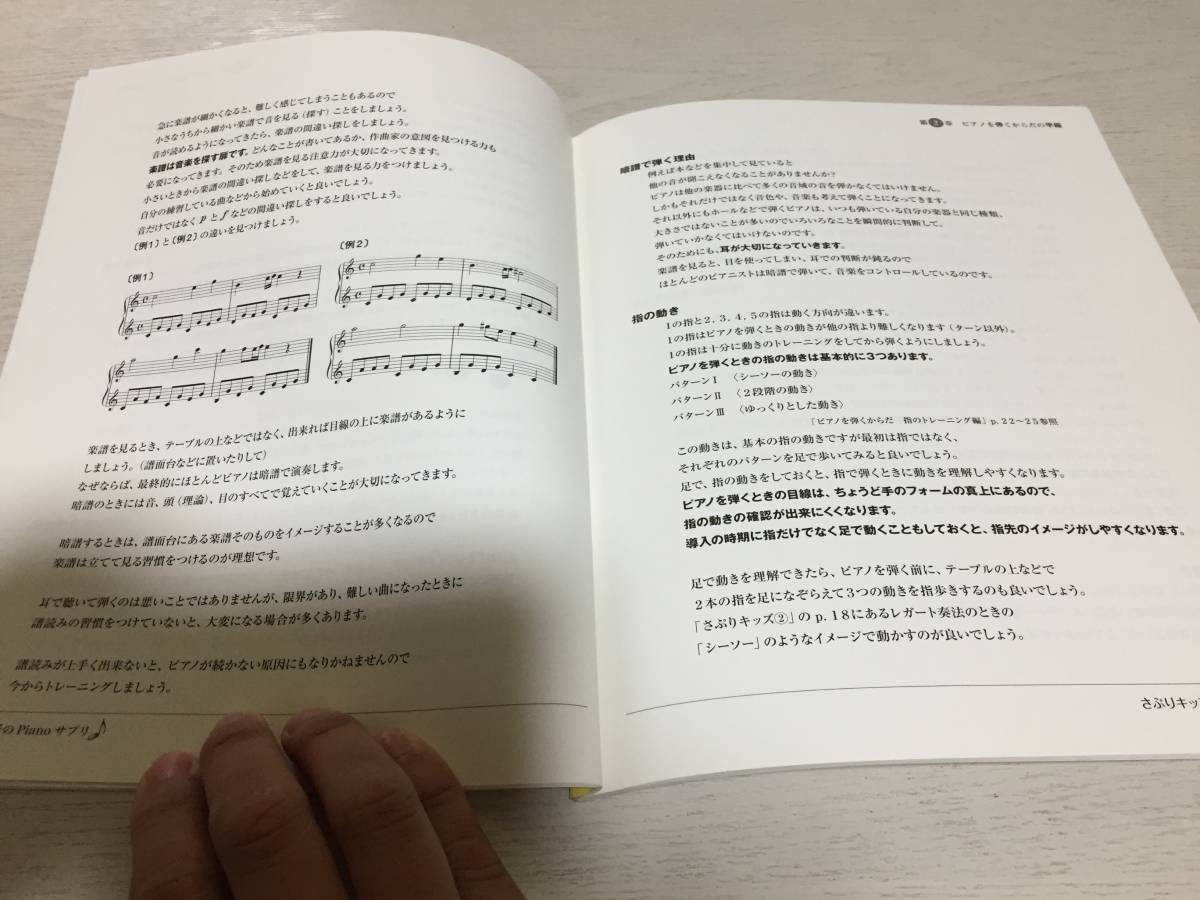 急に楽譜が細かくなると、難しく感じてしまうこともあるので
小さなうちから細かい楽譜で音を見る（探す）ことをしましょう。
音が読めるようになってきたら、楽譜の間違い探しをしましょう。
楽譜は音楽を探す扉です。どんなことが書いてあるか、作曲家の意図を見つける力も
必要になってきます。そのため楽譜を見る注意力が大切になってきます。
小さいときから楽譜の間違い探しなどをして、楽譜を見る力をつけましょう。
自分の練習している曲などから始めていくと良いでしょう。
音だけではなく p と f などの間違い探しをすると良いでしょう。
〔例1〕と〔例2〕の違いを見つけましょう。
〔例1〕
〔例2〕
楽譜を見るとき、テーブルの上などではなく、出来れば目線の上に楽譜があるように
しましょう。（譜面台などに置いたりして）
なぜならば、最終的にほとんどピアノは暗譜で演奏します。
暗譜のときには音、頭（理論）、目のすべてで覚えていくことが大切になってきます。
暗譜するときは、譜面台にある楽譜そのものをイメージすることが多くなるので
楽譜は立てて見る習慣をつけるのが理想です。
耳で聴いて弾くのは悪いことではありませんが、限界があり、難しい曲になったときに
譜読みの習慣をつけていないと、大変になる場合が多くあります。
譜読みが上手く出来ないと、ピアノが続かない原因にもなりかねませんので
今からトレーニングしましょう。
のPianoサプリ
第3章 ピアノを弾くからだの準備
暗譜で弾く理由
例えば本などを集中して見ていると
他の音が聞こえなくなることがありませんか?
ピアノは他の楽器に比べて多くの音域の音を弾かなくてはいけません。
しかもそれだけではなく音色や、音楽も考えて弾くことになってきます。
それ以外にもホールなどで弾くピアノは、いつも弾いている自分の楽器と同じ種類、
大きさではないことが多いのでいろいろなことを瞬間的に判断して、
弾いていかなくてはいけないのです。
そのためにも、耳が大切になっていきます。
楽譜を見ると、目を使ってしまい、耳での判断が鈍るので
ほとんどのピアニストは暗譜で弾いて、音楽をコントロールしているのです。
指の動き
1の指と2, 3, 4, 5の指は動く方向が違います。
1の指はピアノを弾くときの動きが他の指より難しくなります（ターン以外）。
1の指は十分に動きのトレーニングをしてから弾くようにしましょう。
ピアノを弾くときの指の動きは基本的に3つあります。
パターンⅠ 〈シーソーの動き〉
パターンⅡ 〈2段階の動き〉
パターンⅢ 〈ゆっくりとした動き〉
「ピアノを弾くからだ 指のトレーニング編」p.22～25参照
この動きは、基本の指の動きですが最初は指ではなく、
それぞれのパターンを足で歩いてみると良いでしょう。
足で、指の動きをしておくと、指で弾くときに動きを理解しやすくなります。
ピアノを弾くときの目線は、ちょうど手のフォームの真上にあるので、
指の動きの確認が出来にくくなります。
導入の時期に指だけでなく足で動くこともしておくと、指先のイメージがしやすくなります。
足で動きを理解できたら、ピアノを弾く前に、テーブルの上などで
2本の指を足になぞらえて3つの動きを指歩きするのも良いでしょう。
「さぷりキッズ②」の p.18にあるレガート奏法のときの
「シーソー」のようなイメージで動かすのが良いでしょう。
さぷりキッ